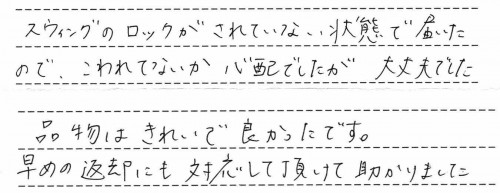 スウィングの ロックが されていない 状態で 届いた
ので、こわれてないか 心配でしたが 大丈夫でした
品物は きれいで 良かったです。
早めの 返却にも 対応して頂けて 助かりました